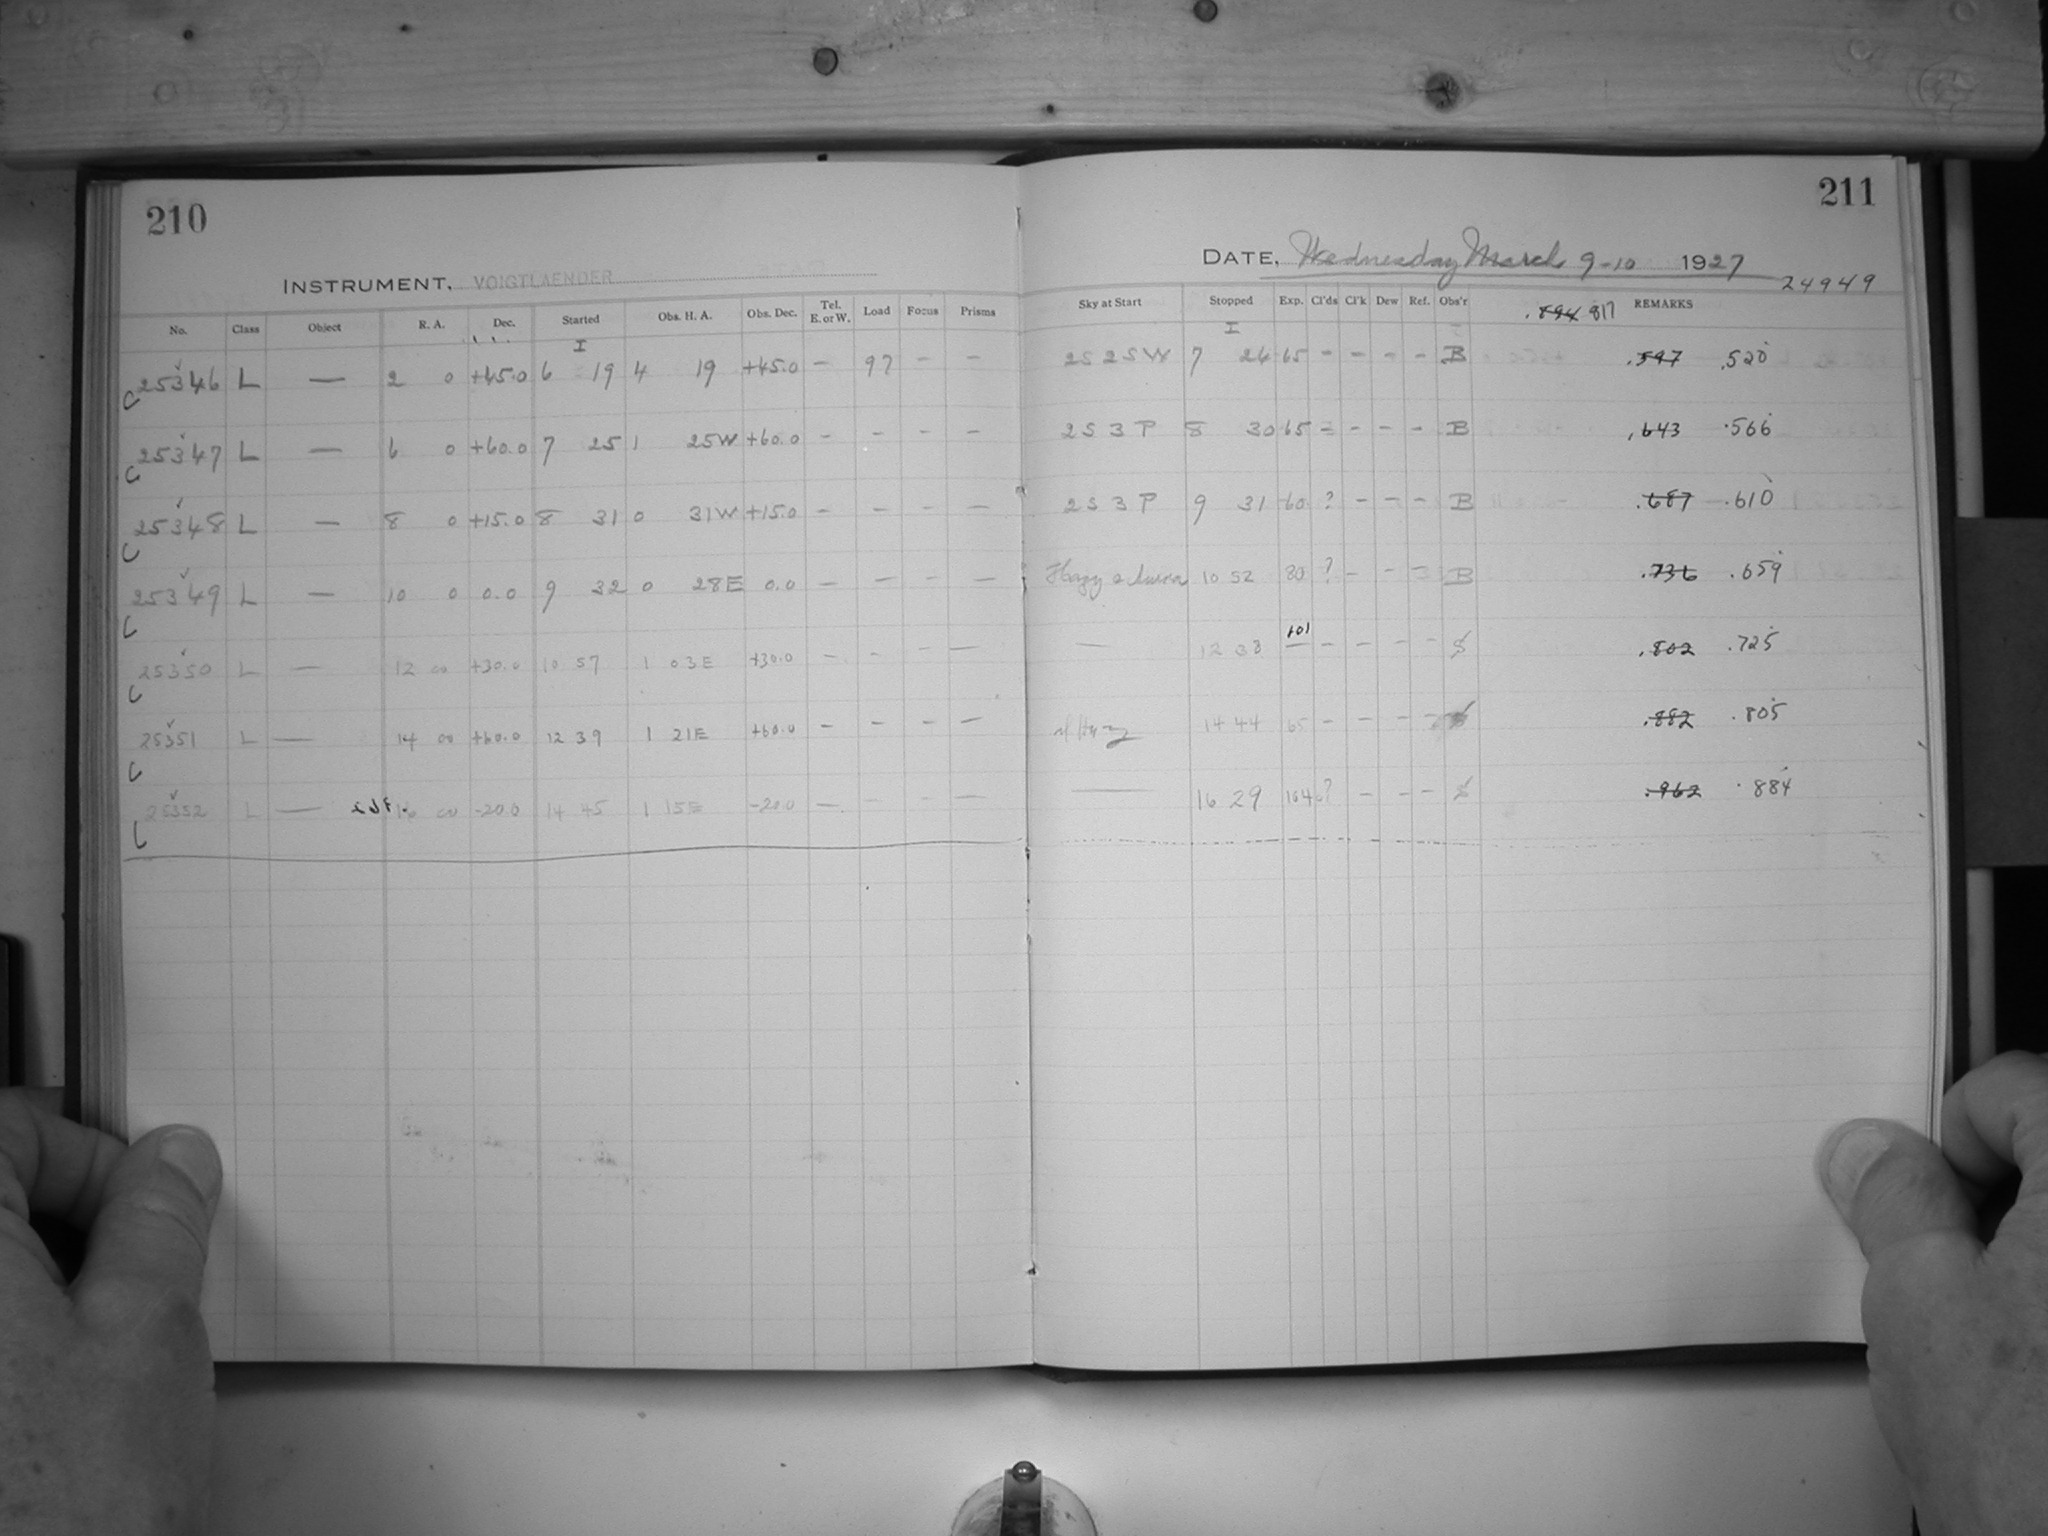 210
INSTRUMENT, VOIGTLAENDER
No. Class Object R. A. Dec. Started Obs. H. A. Obs. Dec. Tel. E. or W. Load Focus Prisms
I
25346 L — 2 0 +45.0 6 19 4 19 +45.0 — 97 — —
25347 L — 6 0 +60.0 7 25 1 25W +60.0 — — — —
25348 L — 8 0 +15.0 8 31 0 31W +15.0 — — — —
25349 L — 10 0 0.0 9 32 0 28E 0.0 — — — —
25350 L — 12 00 +30.0 10 57 1 03E +30.0 — — — —
25351 L — 14 00 +60.0 12 39 1 21E +60.0 — — — —
25352 L — 16 00 -20.0 14 45 1 15E -20.0 — — — —
211
DATE, Wednesday March 9-10 1927
24949
Sky at Start Stopped Exp. Cl'ds Cl'k Dew Ref. Obs'r .894 817 REMARKS
I
2S 2S W 7 24 65 — — — — B .597 .520
2S 3 P 8 30 65 — — — — B .643 .566
2S 3 P 9 31 60 ? — — — B .687 .610
Hazy 10 52 80 ? — — — B .736 .659
— 12 38 101 — — — — .802 .725
14 44 65 — — — — .882 .805
— 16 29 104 ? — — — .962 .884